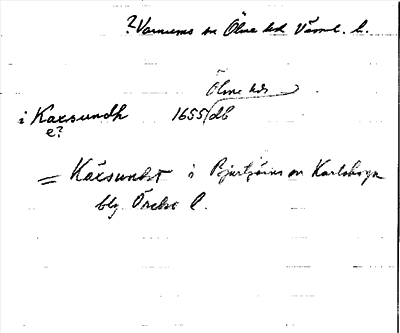 ?Varnums sn Ölme hd Värml. l.
Ölme hds
i Karsundh 1655 db
e?
= Kärsundet i Bjurtjärns sn Karlskoga
blg. Örebro l.